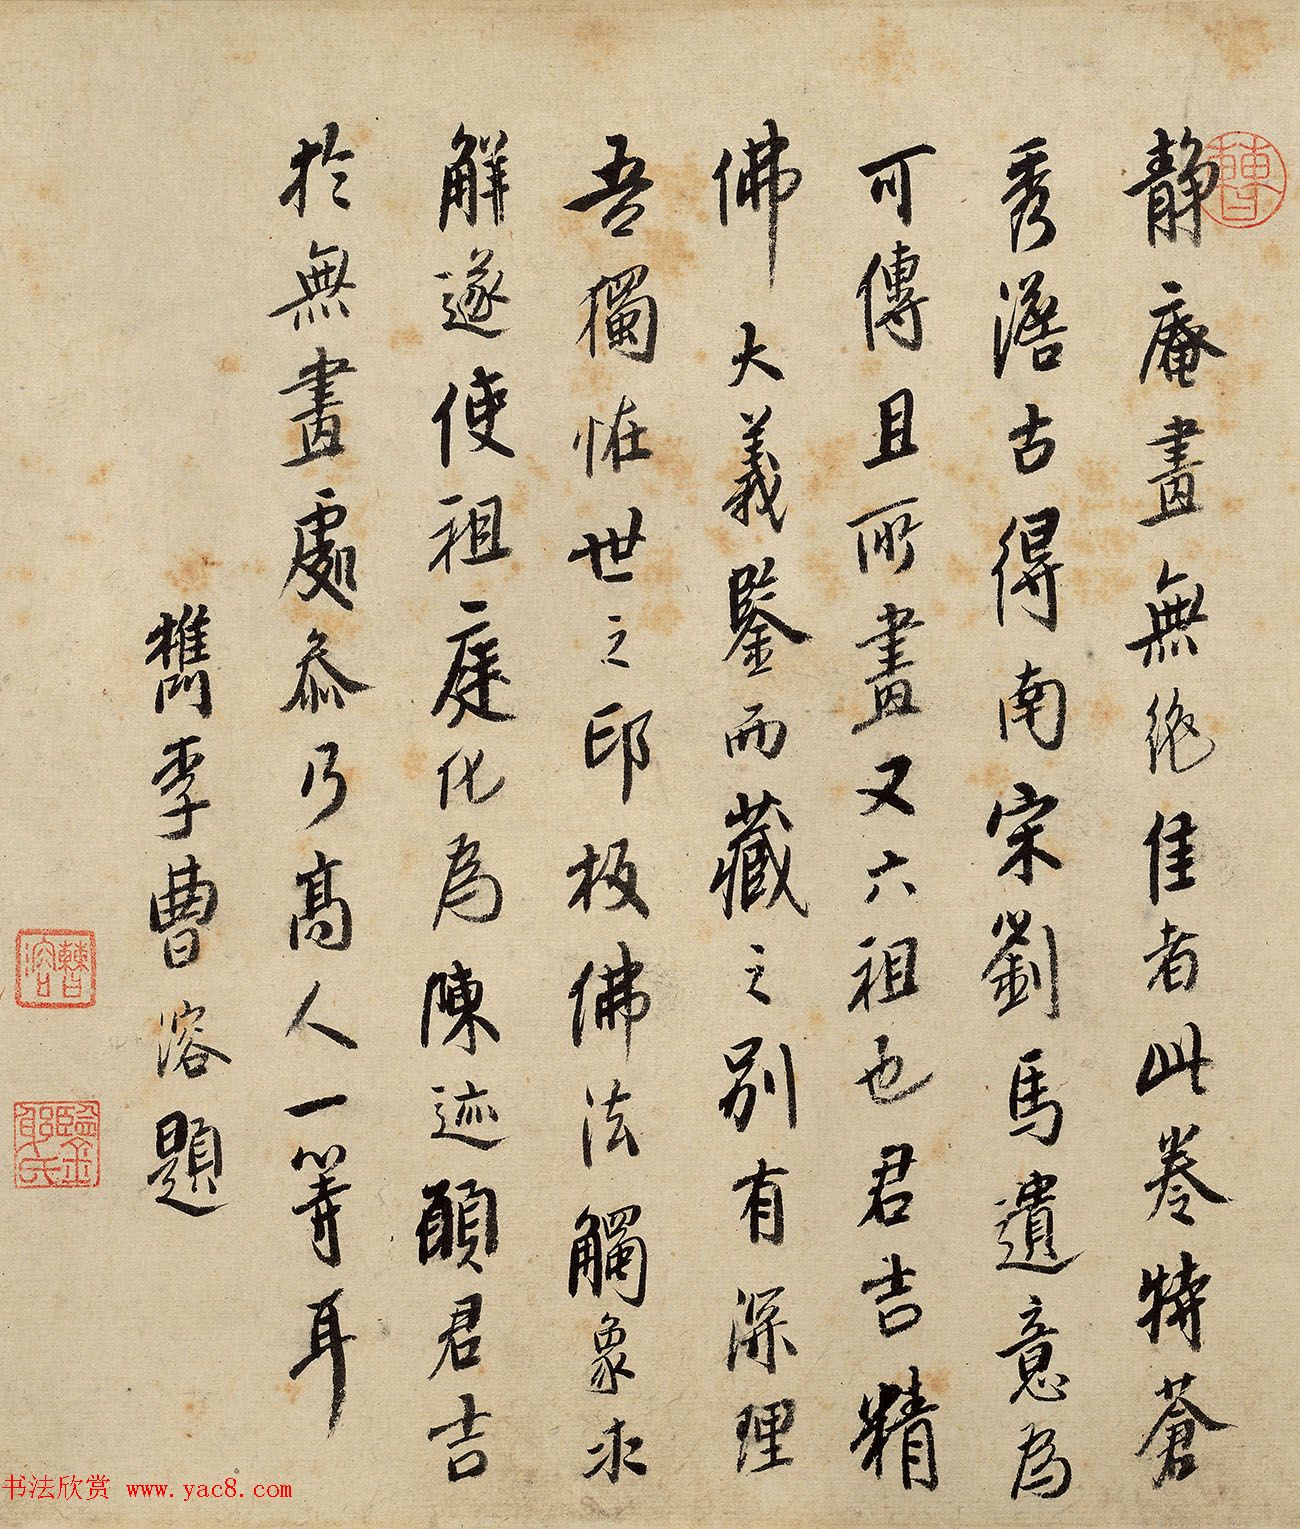 靜庵畫無絕佳者此卷特蒼
秀澹古得南宋劉馬遺意為
可傳且所畫又六祖也君吉精
佛大義鑒而藏之別有深理
吾獨怪世之印板佛法觸象求
解遂使祖庭化為陳迹願君吉
於無畫處叅乃高人一等耳
檇李曹溶題
曹溶
书法欣赏 www.yac8.com